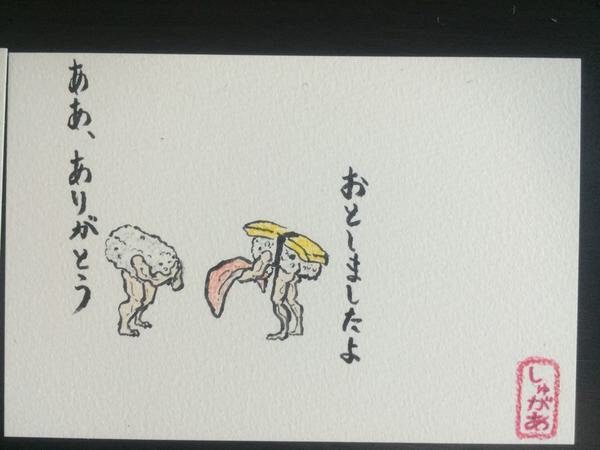 おとしましたよ
ああ、ありがとう
しゅがあ